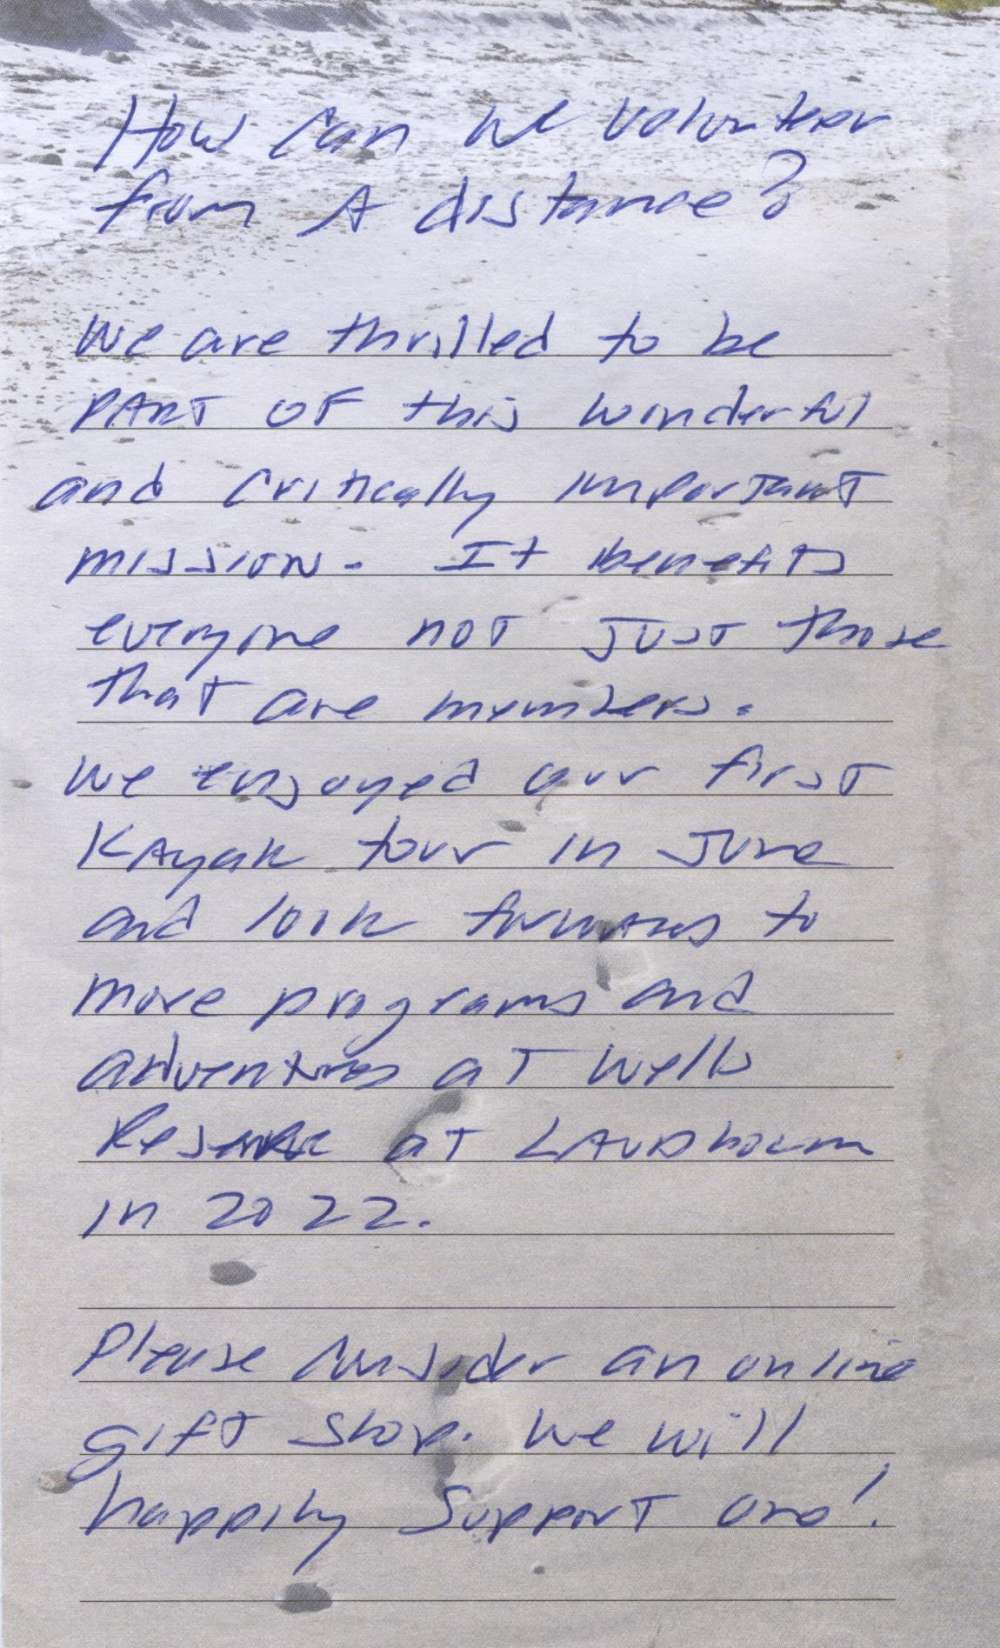 How can we volunteer
from A distance?
We are thrilled to be
PART OF this wonderful
and critically important
mission. It benefits
everyone not JUST those
that are members.
We enjoyed our first
KAyak tour in June
and look forwards to
more programs and
adventures at Wells
Reserve at LAUDholm
in 2022.
Please consider an online
gift shop. We will
happily Support one!